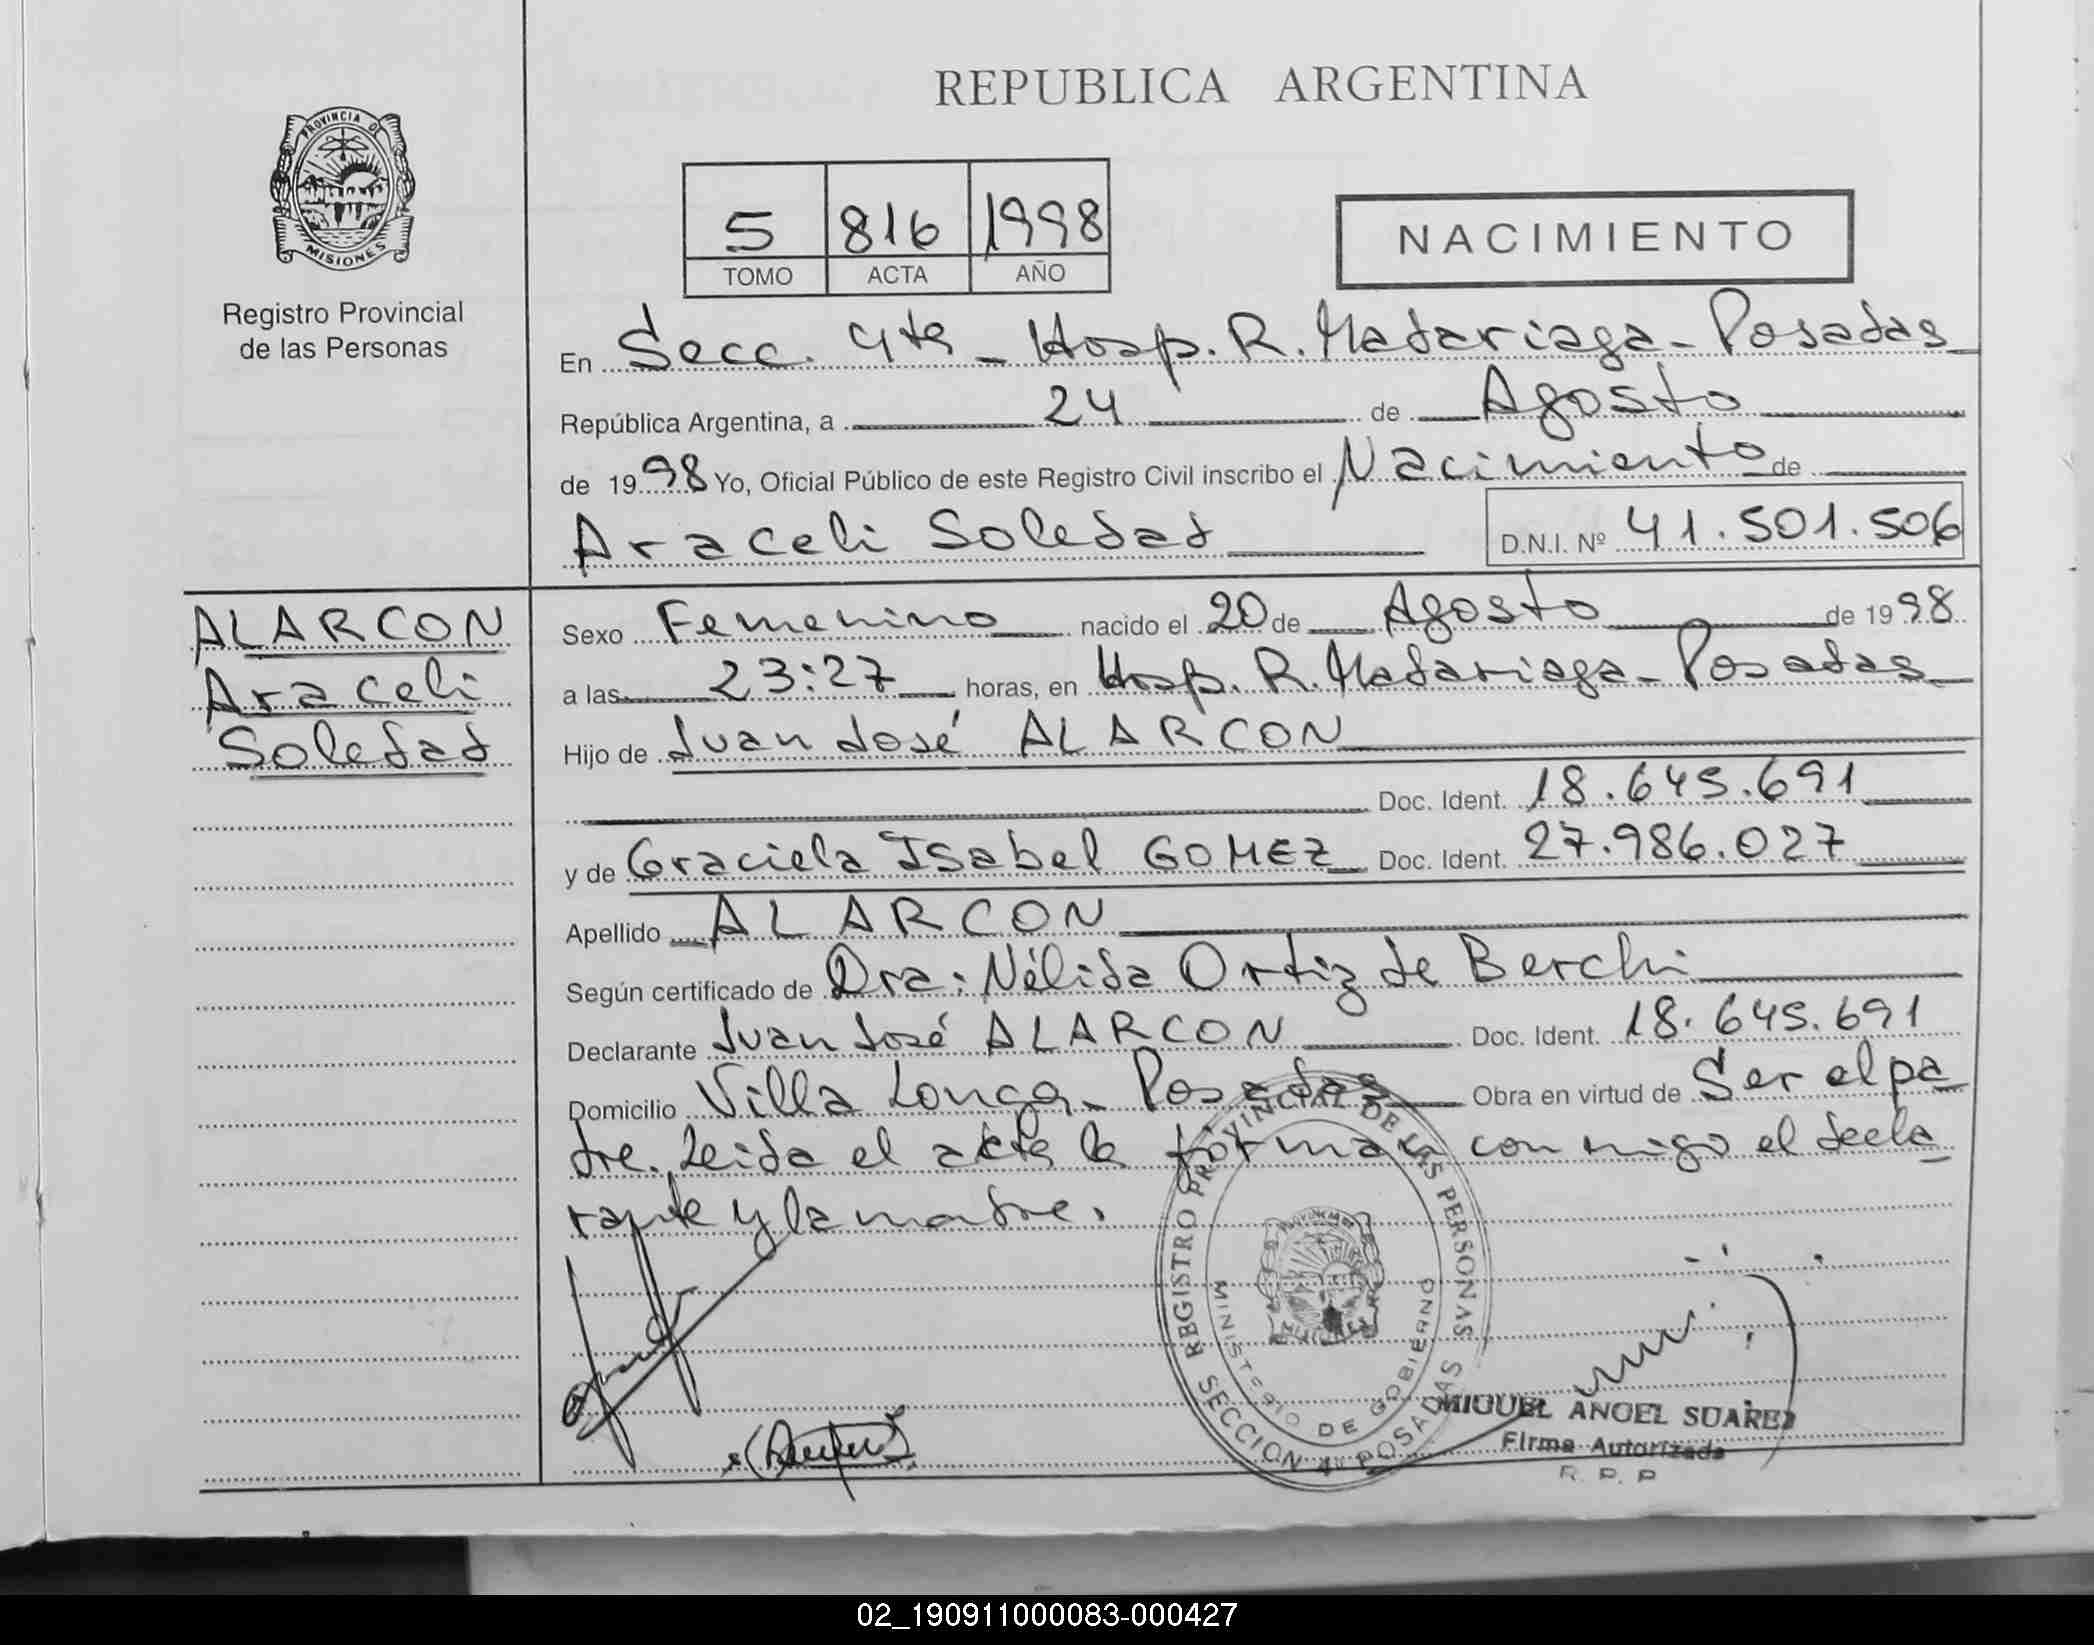 REPUBLICA ARGENTINA
PROVINCIA DE
MISIONES
Registro Provincial
de las Personas
5 816 1998
TOMO ACTA AÑO
NACIMIENTO
En Secc. 4ta - Hosp. R. Madariaga - Posadas
República Argentina, a 24 de Agosto
de 1998 Yo, Oficial Público de este Registro Civil inscribo el Nacimiento de
Araceli Soledad D.N.I. Nº 41.501.506
ALARCON
Araceli
Soledad
Sexo Femenino nacido el 20 de Agosto de 1998
a las 23:27 horas, en Hosp. R. Madariaga - Posadas
Hijo de Juan José ALARCON
Doc. Ident. 18.645.691
y de Graciela Isabel GOMEZ Doc. Ident. 27.986.027
Apellido ALARCON
Según certificado de Dra: Nélida Ortiz de Berchi
Declarante Juan José ALARCON Doc. Ident. 18.645.691
Domicilio Villa Longa - Posadas Obra en virtud de Ser el pa
dre. Leida el acta la forman con migo el decla
rante y la madre.
REGISTRO PROVINCIAL DE LAS PERSONAS
MINISTERIO DE GOBIERNO
SECCION 4ª POSADAS
MIGUEL ANGEL SUAREZ
Firma Autorizada
R. P. P
02_190911000083-000427